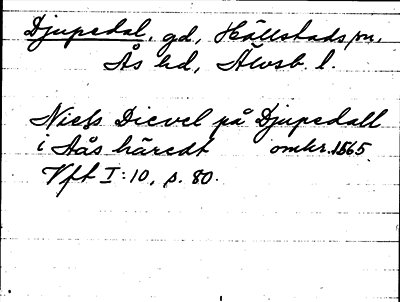 Djupedal, gd, Hällstads sn,
Ås hd, Älvsb. l.
Niels Dievel på Djupedall
i Aås häredt omkr. 1565.
Vft I:10, s. 80.